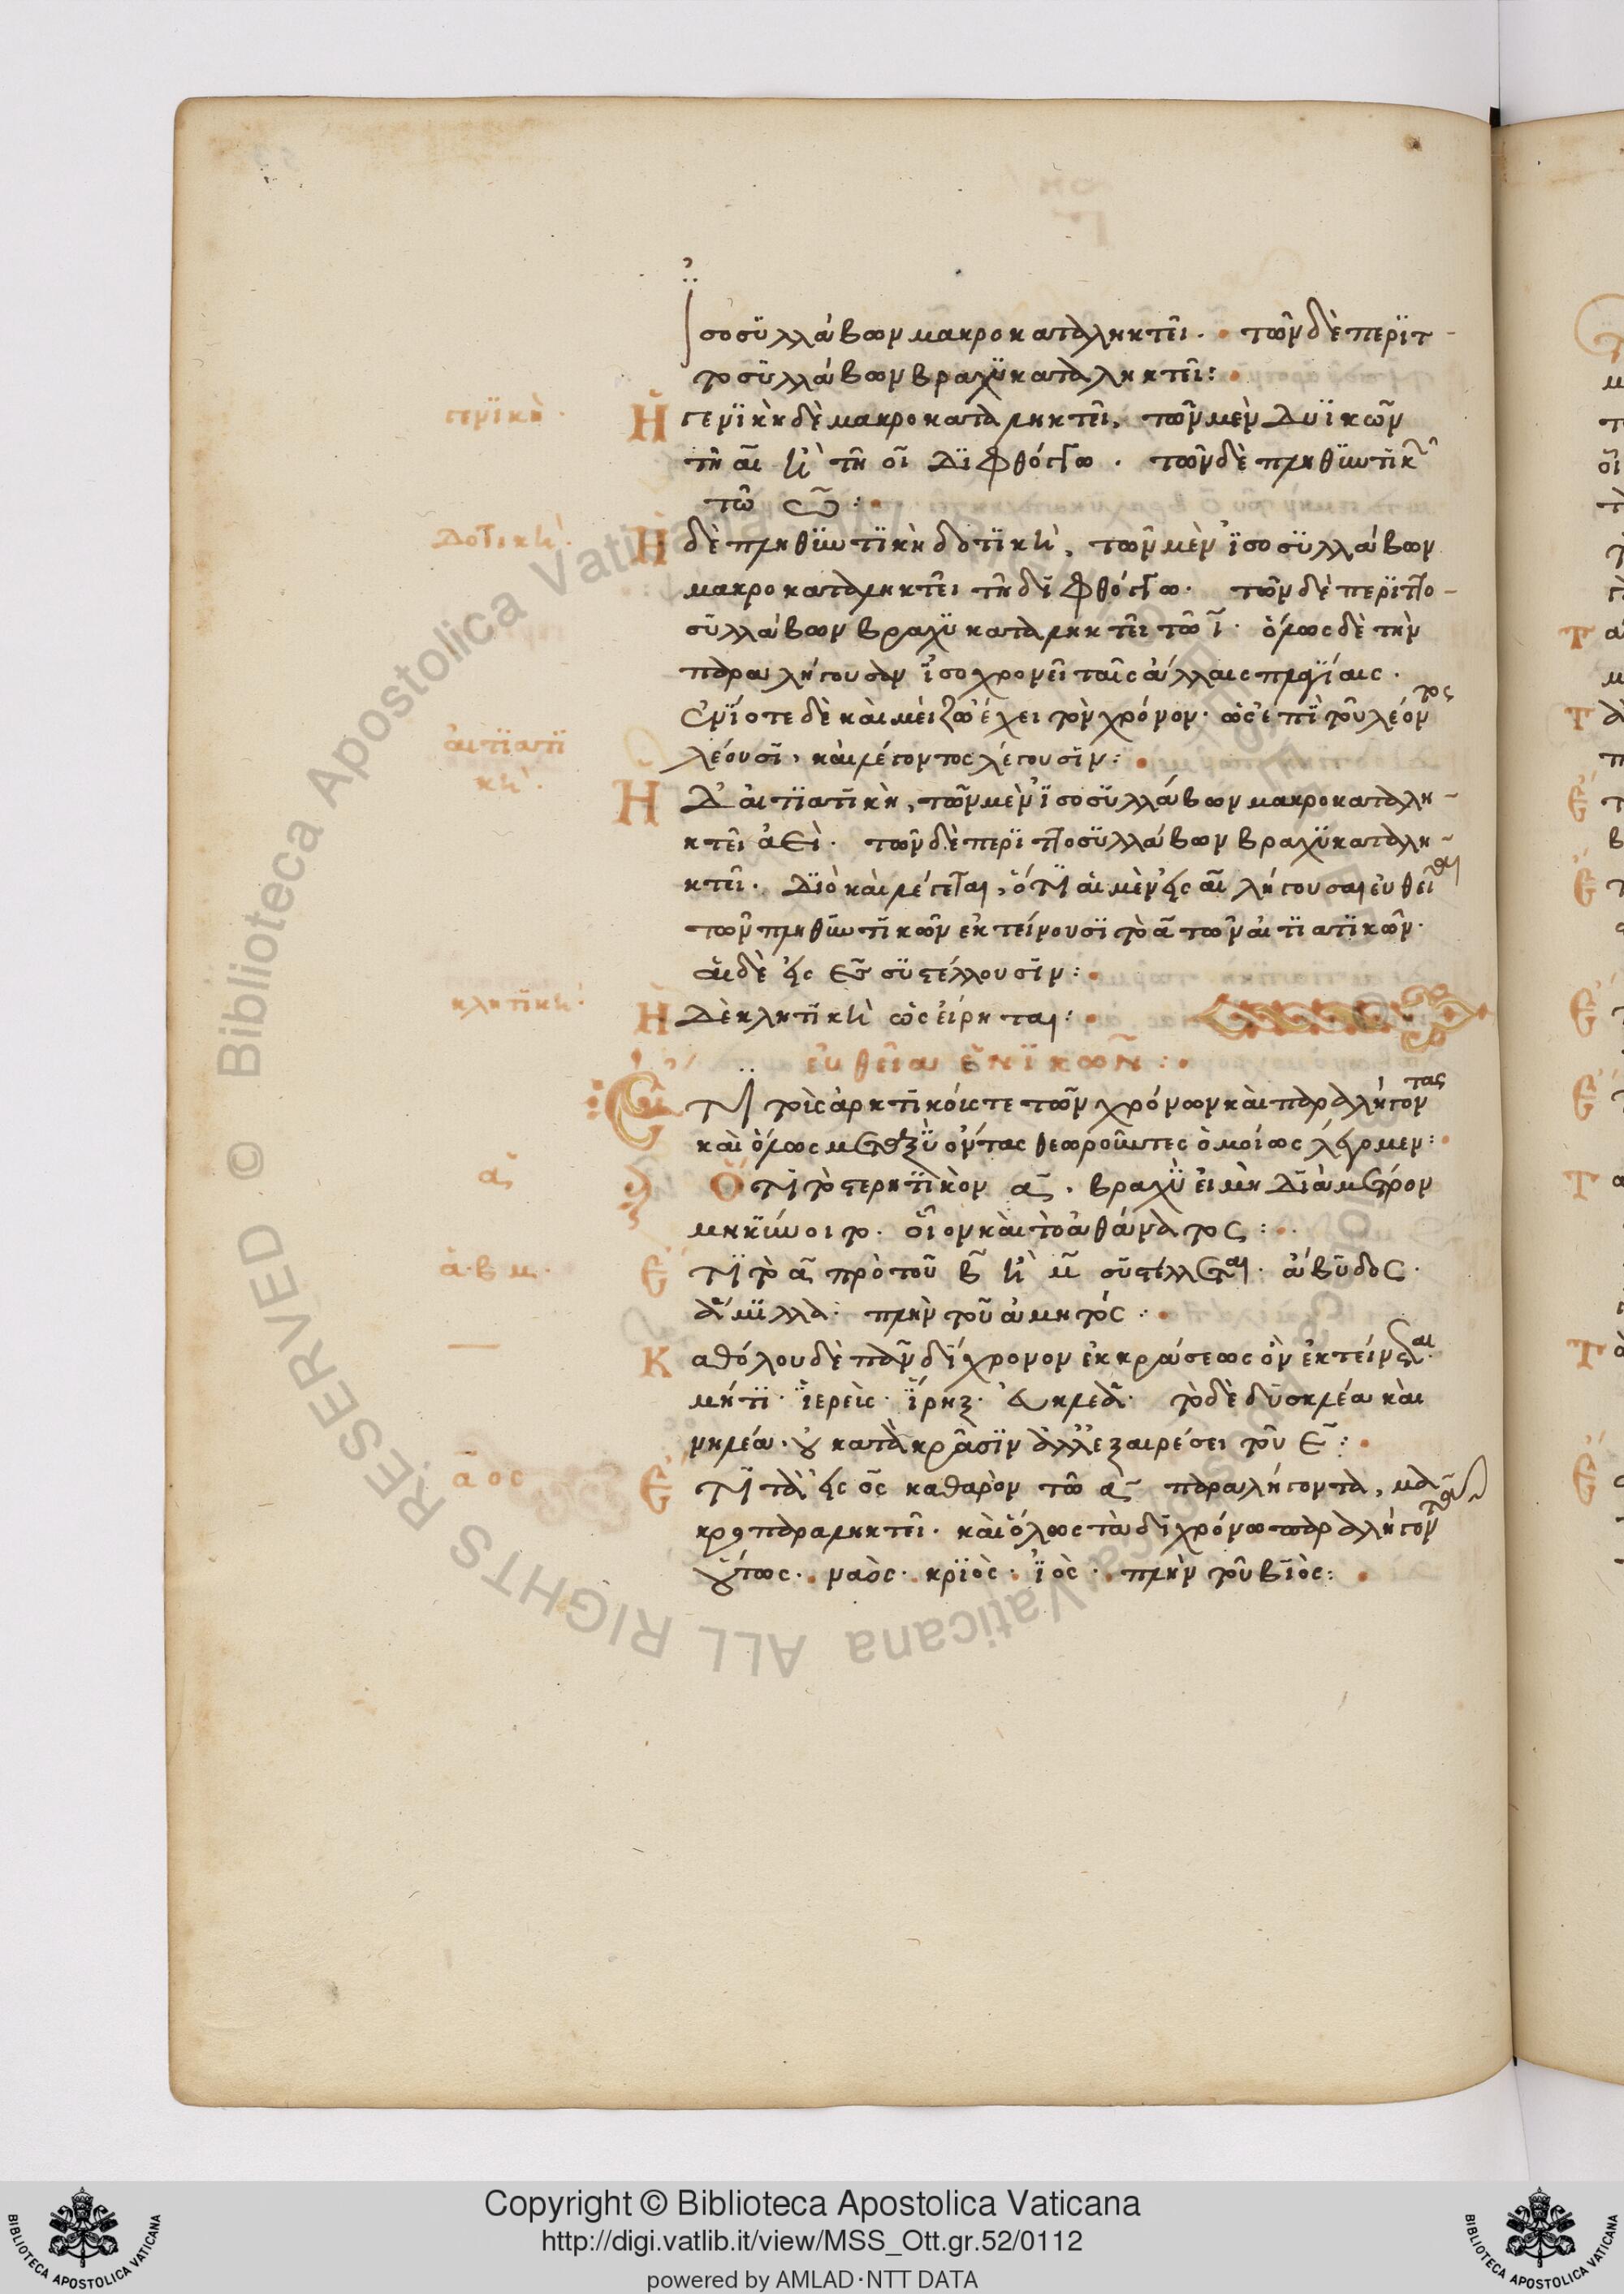 ἰσοσυλλάβων μακροκαταληκτεῖ. τῶν δὲ περιτ-
τοσυλλάβων βραχυκαταληκτεῖ:
γενικὴ.
Ἡ γενικὴ δὲ μακροκαταληκτεῖ, τῶν μὲν δυϊκῶν
τῆ αι κ τῆ οι διφθόγγω. τῶν δὲ πληθυντικ
τῶ ω:
δοτικὴ.
Ἡ δὲ πληθυντικὴ δοτικὴ, τῶν μὲν ἰσοσυλλάβων
μακροκαταληκτεῖ τῆ διφθόγγω. τῶν δὲ περιττο-
συλλάβων βραχυκαταληκτεῖ τῶ ι. ὅμως δὲ τὴν
παραλήγουσαν ἰσοχρονεῖ ταῖς ἄλλαις πλαγίαις.
ἐνίοτε δὲ καὶ μείζω ἔχει τὸν χρόνον. ὡς ἐπὶ τοῦ λέοντος
λέουσι, καὶ λέγοντος λέγουσιν:
αἰτιατι
κὴ.
Ἡ δ' αἰτιατικὴ, τῶν μὲν ἰσοσυλλάβων μακροκαταλη-
κτεῖ ἀεὶ. τῶν δὲ περιττοσυλλάβων βραχυκαταλη-
κτεῖ. διὸ καὶ λέγεται, ὅτι αἱ μὲν εἰς αι λήγουσαι εὐθεῖαι
τῶν πληθυντικῶν ἐκτείνουσι τὸ α τῶν αἰτιατικῶν.
αἱ δὲ εἰς ες συστέλλουσιν:
κλητικὴ.
Ἡ δὲ κλητικὴ ὡς εἴρηται:
εὐθεῖα ἑνικῶν:
Ἔτι τοῖς ἀρκτικοῖς τε τῶν χρόνων καὶ παραλήγοντας
καὶ ὅλως μεταξὺ ὄντας θεωροῦντες ὁμοίως λέγομεν:
α
Ὅτι τὸ στερητικὸν α. βραχὺ εἰ μὴ διὰ μέτρον
μηκύνοιτο. οἷον καὶ τὸ ἀθάνατος:
α. β μ.
Ἔτι τὸ α πρὸ τοῦ β κ μ συστέλλεται. ἄβυδος.
ἅμιλλα. πλὴν τοῦ ἀμητός:
Καθόλου δὲ πᾶν δίχρονον ἐκ κράσεως ὂν ἐκτείνεται.
μήτι. ἱερεῖς. ἴρηξ. ἀκλεᾶ. τὸ δὲ δυσκλέα καὶ
νηλέα. οὐ κατὰ κρᾶσιν ἀλλ' ἐξαιρέσει τοῦ ε:
α ος
Ἔτι τὰ εἰς ος καθαρὸν τῶ α παραλήγοντα, μα
κροπαραληκτεῖ. καὶ ὅλως τὰ διχρόνω παραλήγοντα
οὕτως. ναὸς. κριὸς. ἰὸς. πλὴν τοῦ βιὸς:
© Biblioteca Apostolica Vaticana ALL RIGHTS RESERVED
Copyright © Biblioteca Apostolica Vaticana
http://digi.vatlib.it/view/MSS_Ott.gr.52/0112
powered by AMLAD·NTT DATA
BIBLIOTECA APOSTOLICA VATICANA
BIBLIOTECA APOSTOLICA VATICANA